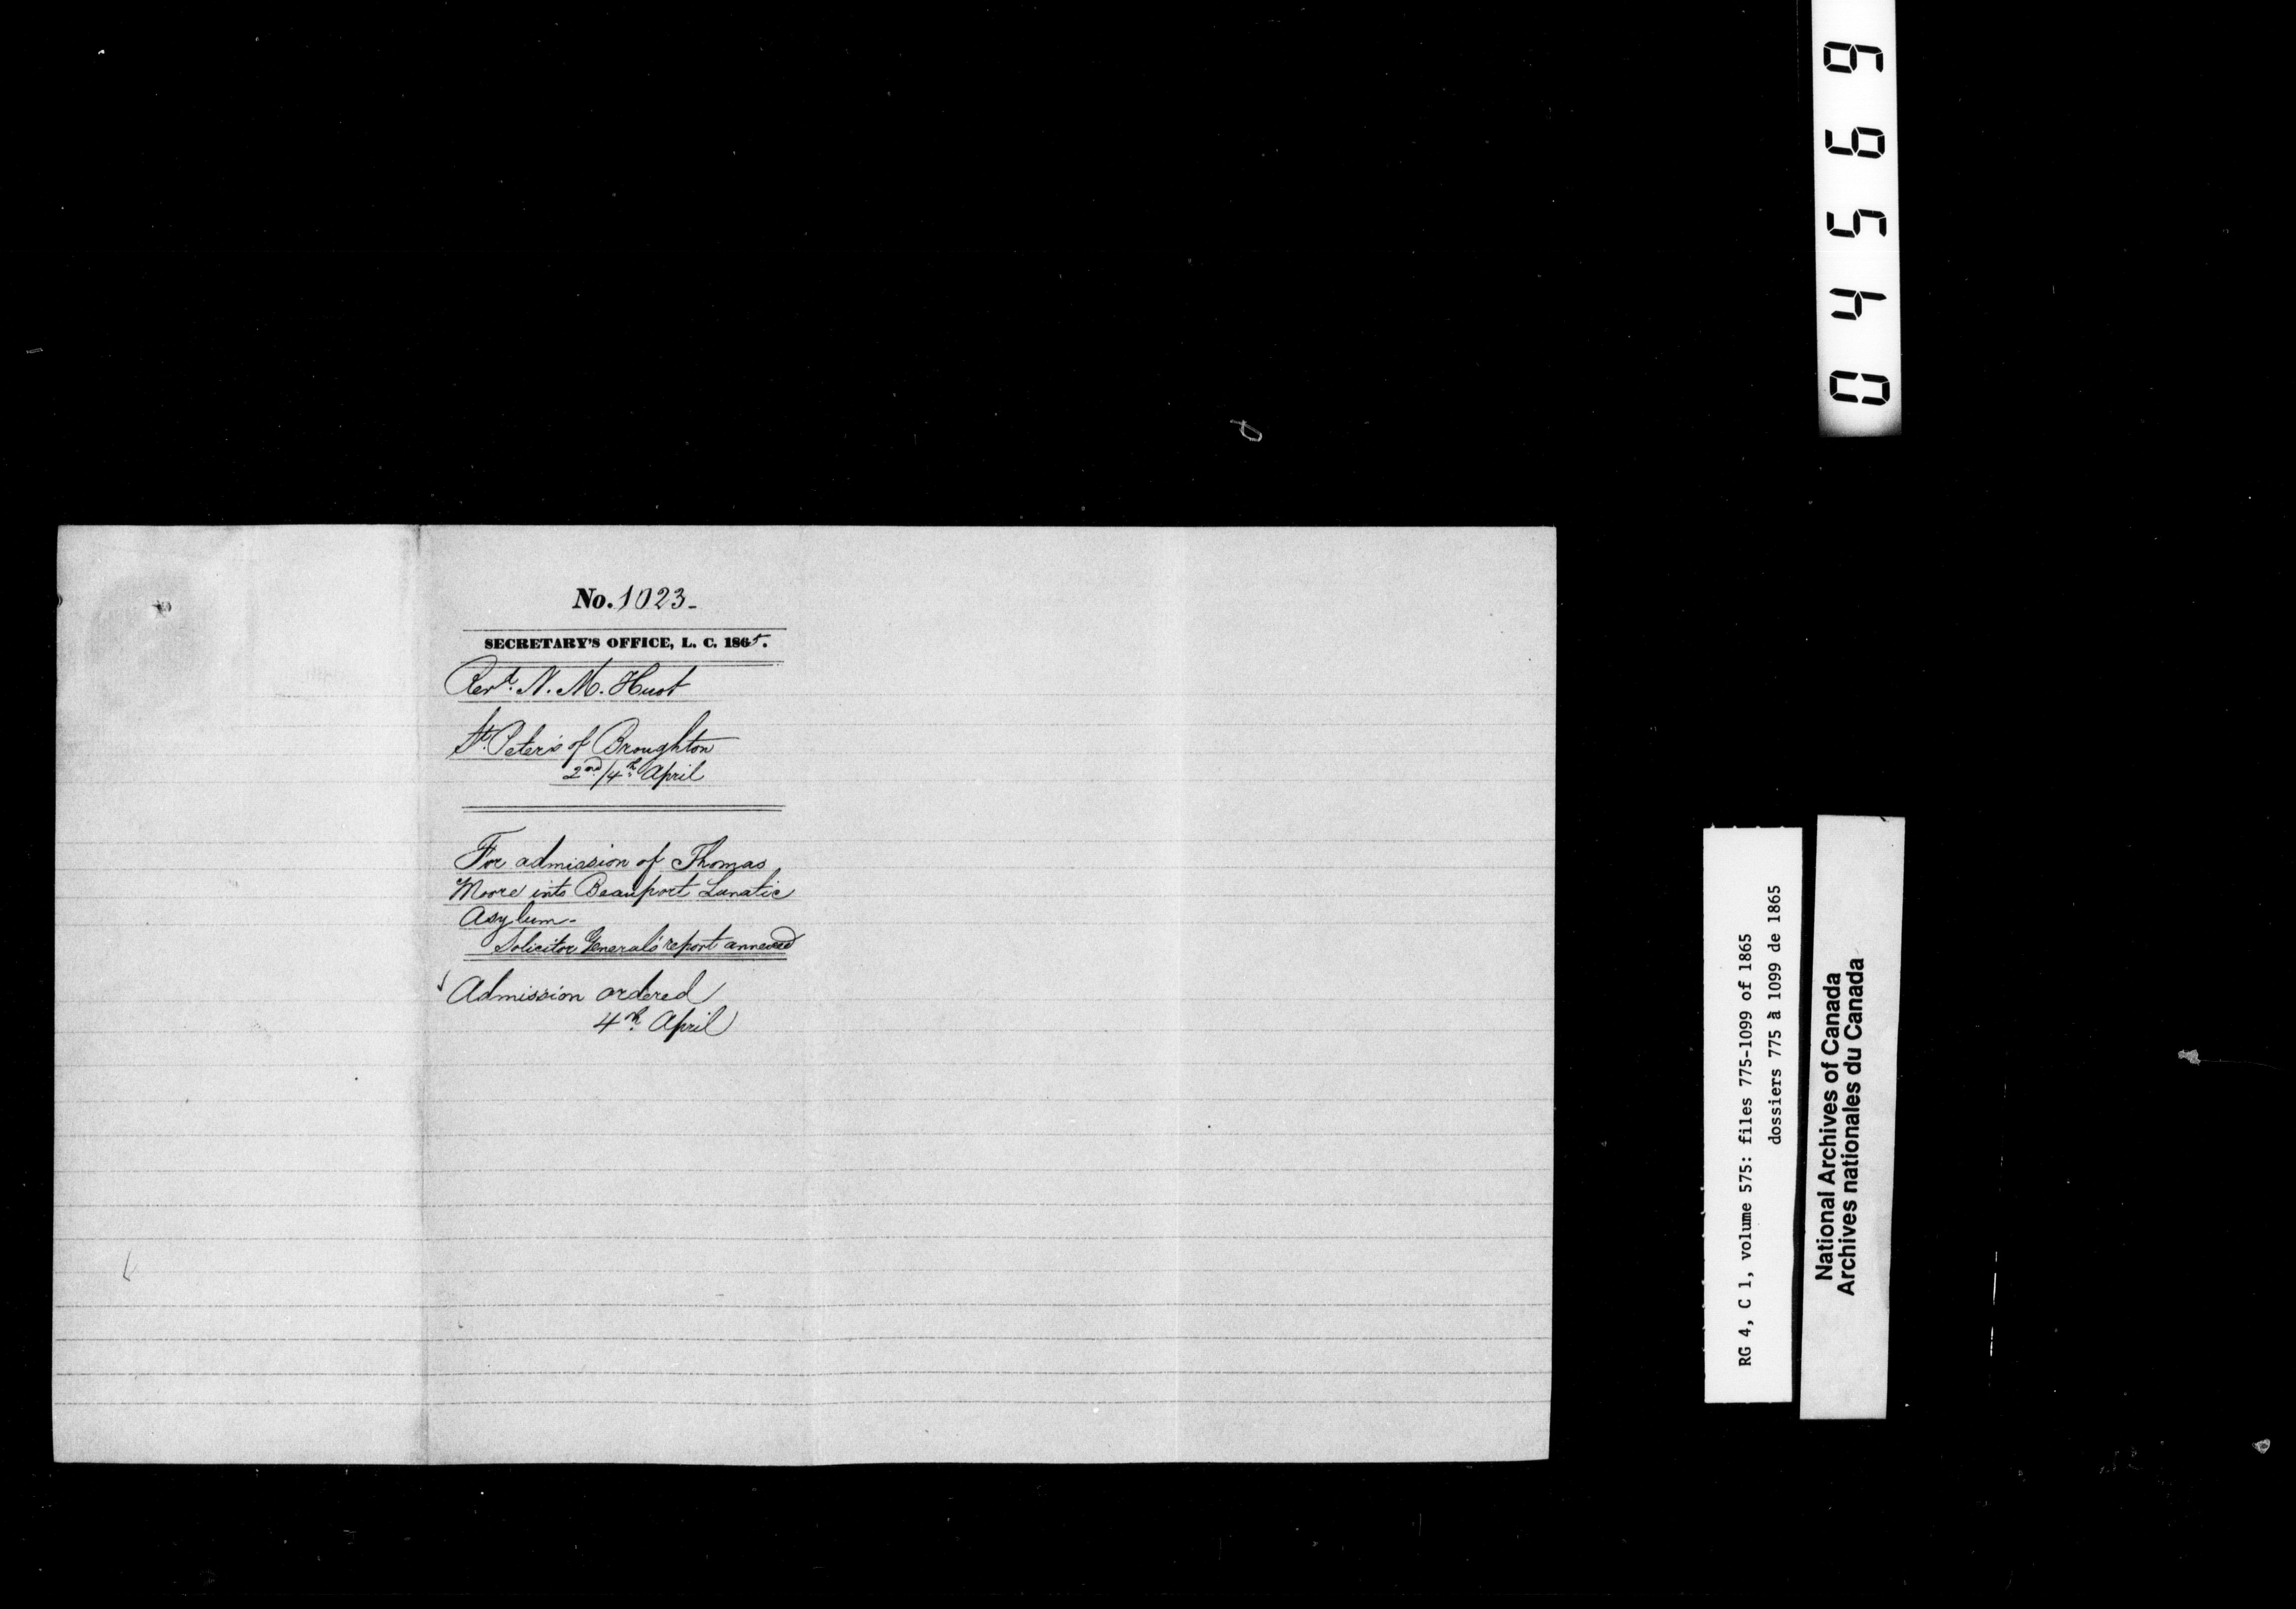 No. 1023-
SECRETARY'S OFFICE, L. C. 1865.
Revd. N. M. Huot
St. Peter's of Broughton
2nd/4th April
For admission of Thomas
Moore into Beauport Lunatic
Asylum-
Solicitor General's report annexed
Admission ordered
4th April
04569
RG 4, C 1, volume 575: files 775-1099 of 1865
dossiers 775 à 1099 de 1865
National Archives of Canada
Archives nationales du Canada